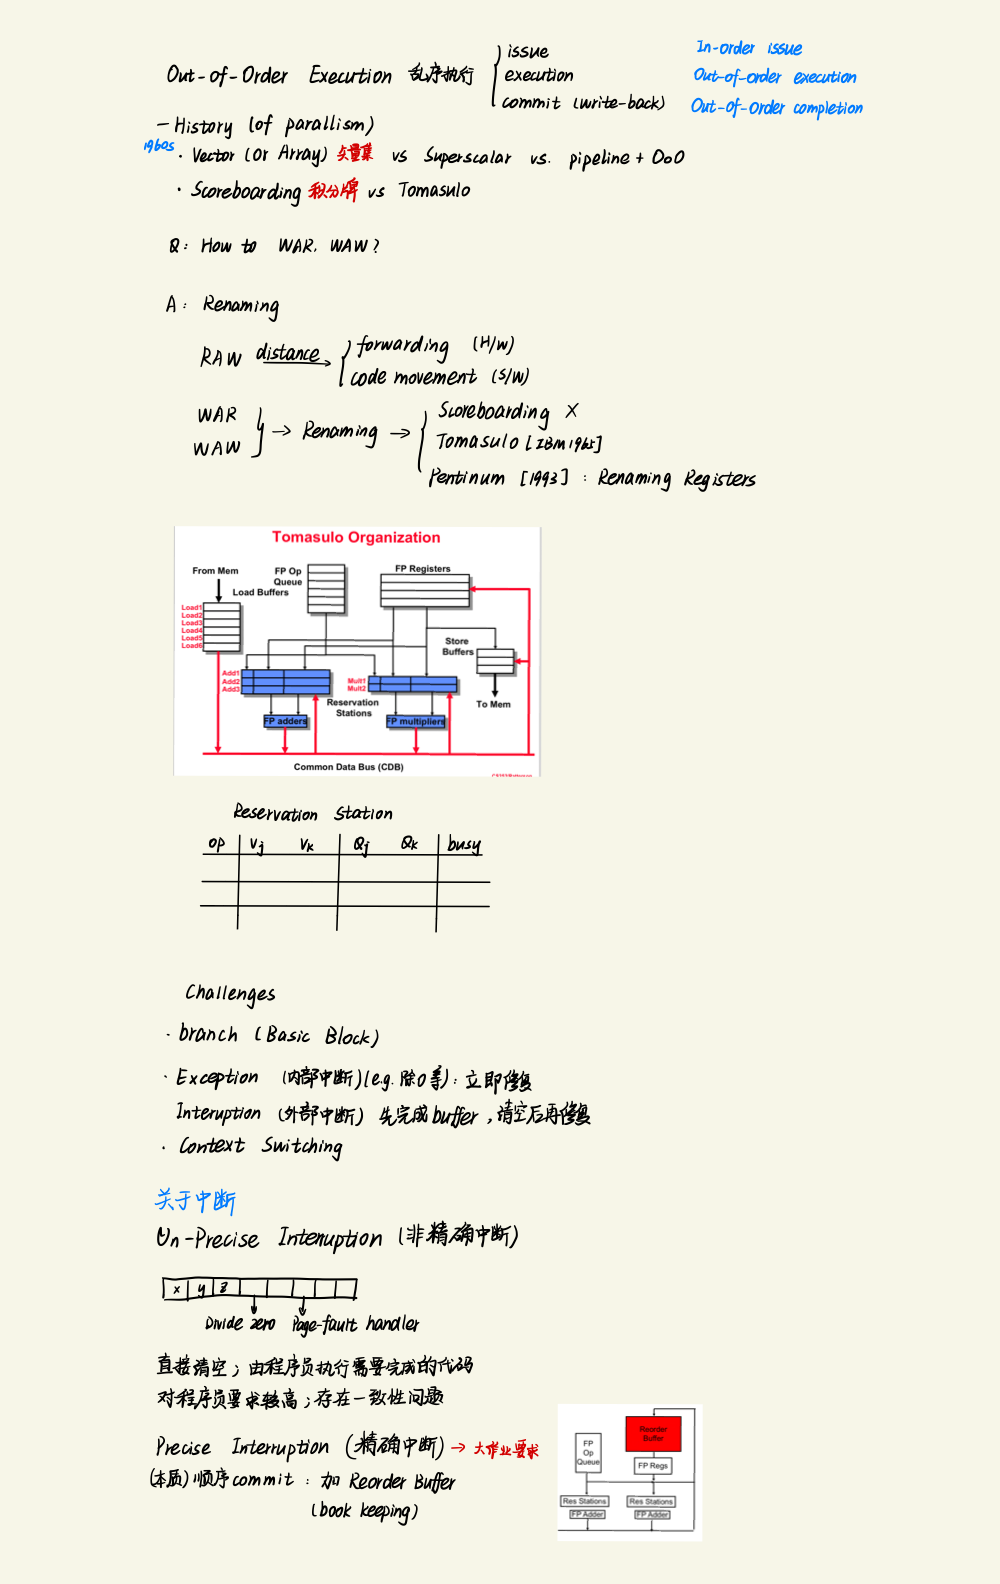 Out-of-Order Execution 乱序执行
issue
execution
commit (write-back)
In-order issue
Out-of-order execution
Out-of-Order completion
- History (of parallism)
1960s
· Vector (or Array) 矢量集 vs Superscalar vs. pipeline + OoO
· Scoreboarding 积分牌 vs Tomasulo
Q: How to WAR. WAW?
A: Renaming
RAW distance
forwarding (H/W)
code movement (S/W)
WAR
WAW
→ Renaming →
Scoreboarding X
Tomasulo [IBM 1965]
Pentinum [1993] : Renaming Registers
Tomasulo Organization
From Mem
FP Op
Queue
FP Registers
Load Buffers
Load1
Load2
Load3
Load4
Load5
Load6
Store
Buffers
Add1
Add2
Add3
Mult1
Mult2
Reservation
Stations
To Mem
FP adders
FP multipliers
Common Data Bus (CDB)
Reservation Station
op Vj Vk Qj Qk busy
Challenges
· branch (Basic Block)
· Exception (内部中断)(e.g. 除0等): 立即修复
Interuption (外部中断) 先完成buffer,清空后再修复
· Context Switching
关于中断
Un-Precise Interruption (非精确中断)
x y z
Divide zero Page-fault handler
直接清空; 由程序员执行需要完成的代码
对程序员要求较高; 存在一致性问题
Precise Interruption (精确中断) → 大作业要求
(本质) 顺序commit : 加 Reorder Buffer
(book keeping)
Reorder
Buffer
FP
Op
Queue
FP Regs
Res Stations
Res Stations
FP Adder
FP Adder